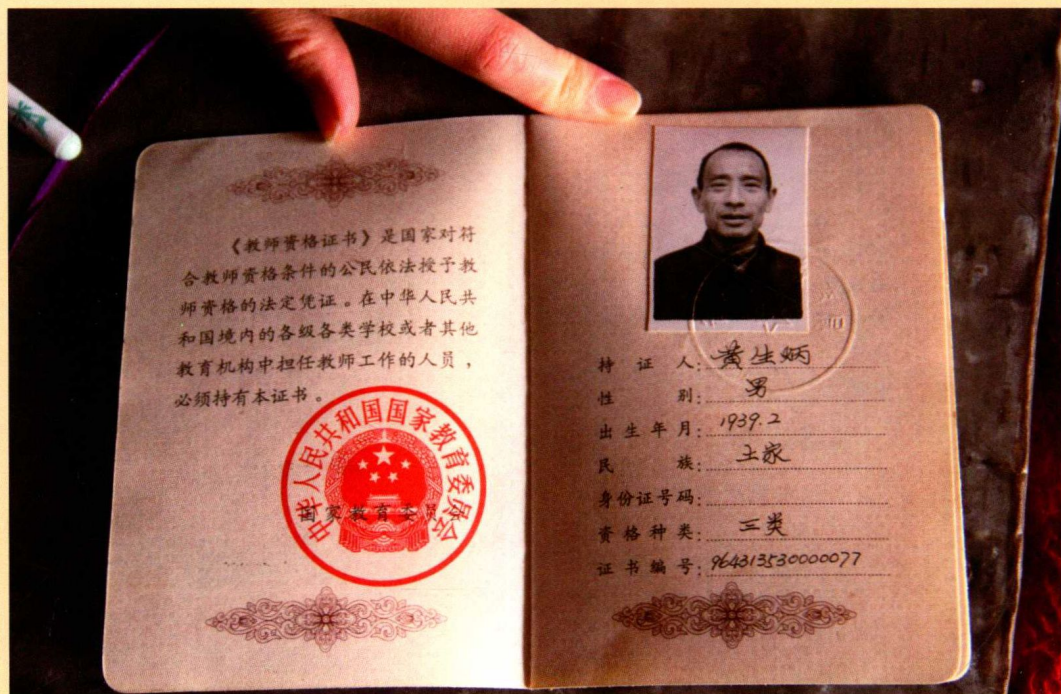 《教师资格证书》是国家对符
合教师资格条件的公民依法授予教
师资格的法定凭证。在中华人民共
和国境内的各级各类学校或者其他
教育机构中担任教师工作的人员，
必须持有本证书。
中华人民共和国国家教育委员会
国家教育委员会
持证人：黄生炳
性别：男
出生年月：1939.2
民族：土家
身份证号码：
资格种类：三类
证书编号：964313530000077